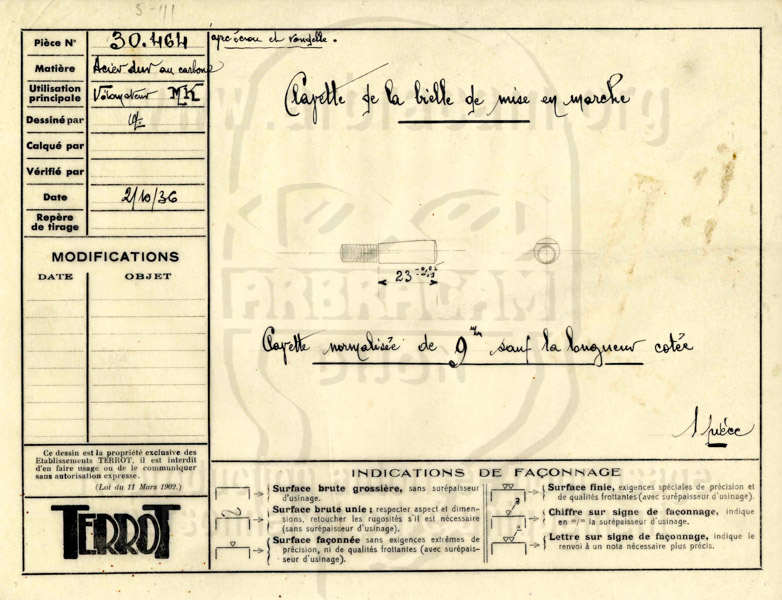 S-411
Pièce N° 30.464
apc écrou et rondelle.
Matière Acier dur au carbone
Utilisation principale Vélomoteur MK
Dessiné par
Calqué par
Vérifié par
Date 2/10/36
Repère de tirage
MODIFICATIONS
DATE OBJET
Ce dessin est la propriété exclusive des
Etablissements TERROT, il est interdit
d'en faire usage ou de le communiquer
sans autorisation expresse.
(Loi du 11 Mars 1902.)
TERROT
Clavette de la bielle de mise en marche
23
Clavette normalisée de 9 m/m sauf la longueur cotée
1 pièce
INDICATIONS DE FAÇONNAGE
Surface brute grossière, sans surépaisseur
d'usinage.
Surface brute unie; respecter aspect et dimen-
sions, retoucher les rugosités s'il est nécessaire
(sans surépaisseur d'usinage).
Surface façonnée sans exigences extrêmes de
précision, ni de qualités frottantes (avec surépais-
seur d'usinage).
Surface finie, exigences spéciales de précision et
de qualités frottantes (avec surépaisseur d'usinage).
Chiffre sur signe de façonnage, indique
en m/m la surépaisseur d'usinage.
Lettre sur signe de façonnage, indique le
renvoi à un nota nécessaire plus précis.
www.arbracam.org
ARBRACAM
DIJON